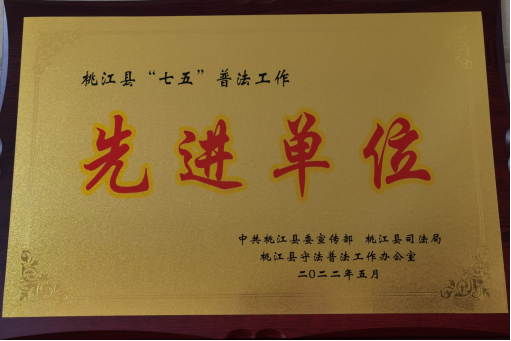 桃江县“七五”普法工作
先进单位
中共桃江县委宣传部 桃江县司法局
桃江县守法普法工作办公室
二〇二二年五月